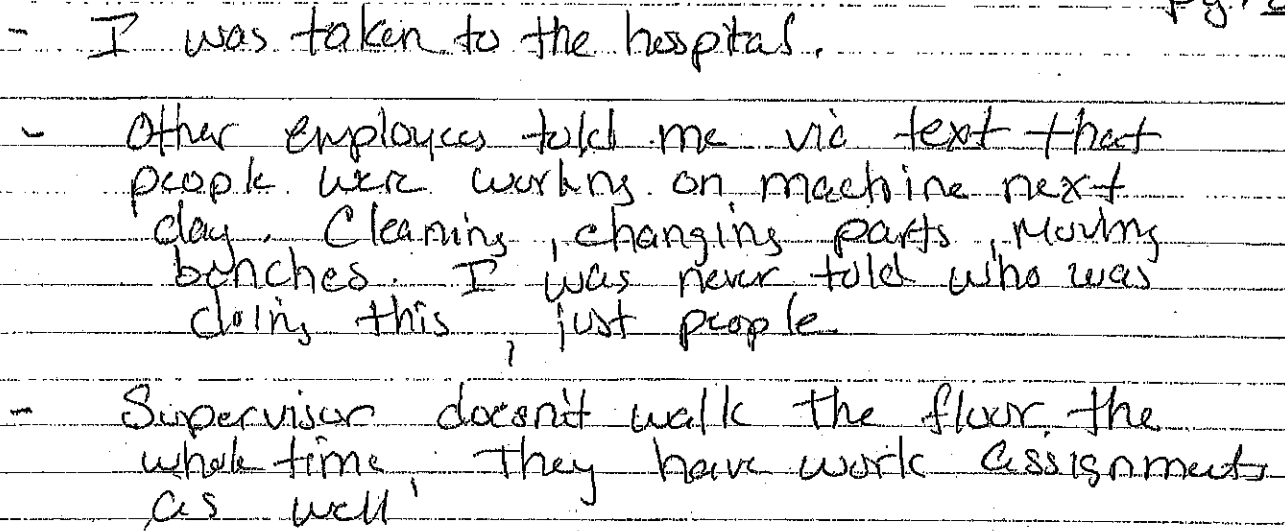 pg.
- I was taken to the hospital.
- Other employees told me via text that
people were working on machine next
day. Cleaning, changing parts, Moving
benches. I was never told who was
doing this, just people
- Supervisor doesn't walk the floor the
whole time, They have work assignments
as well